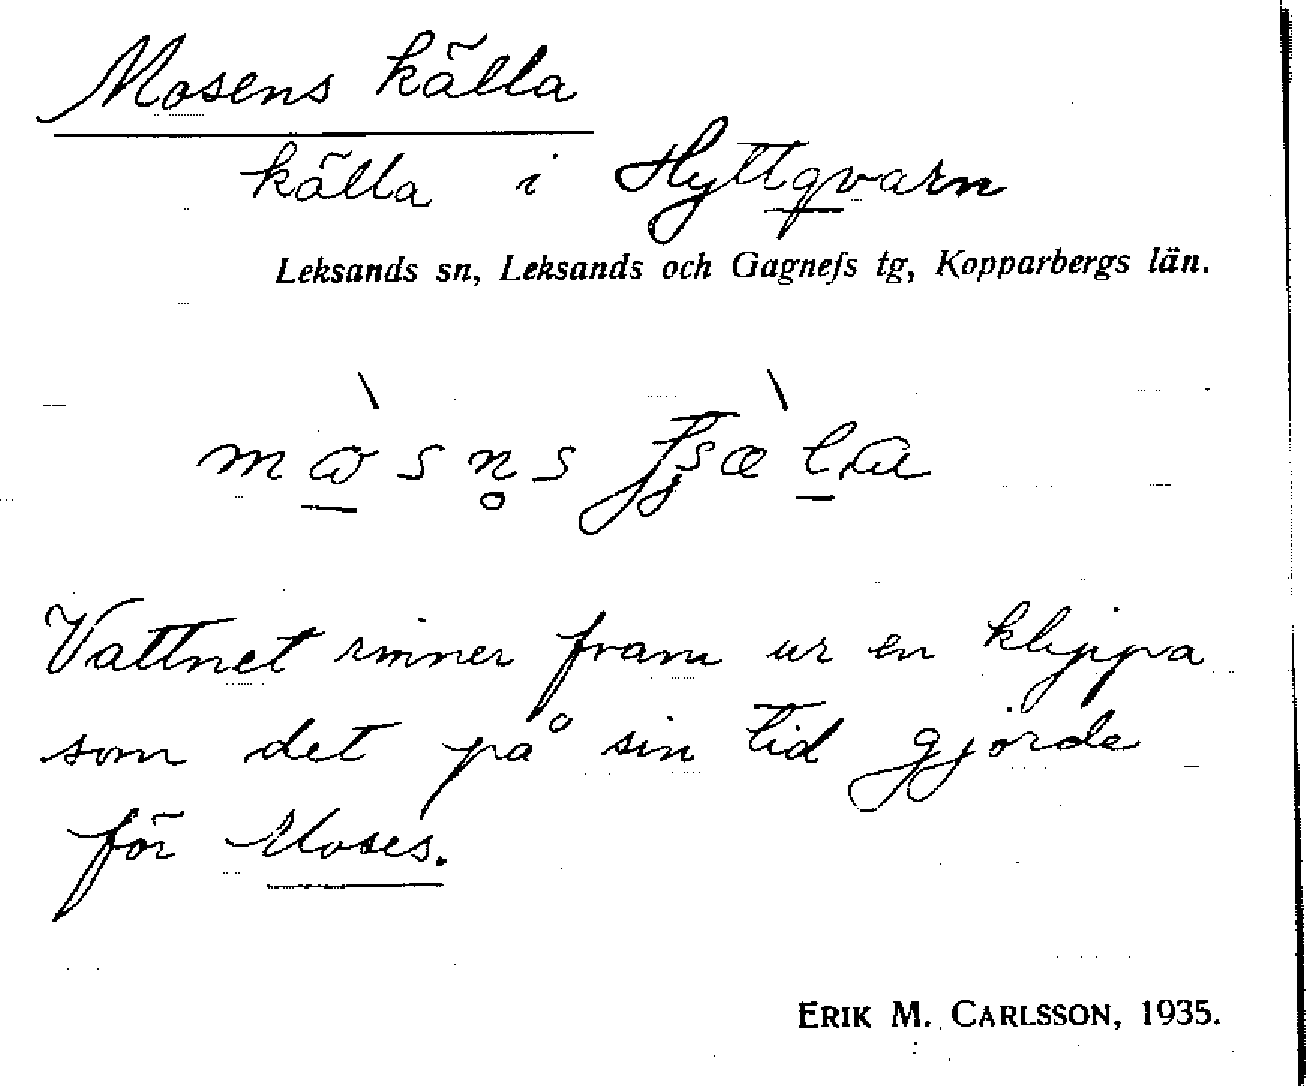 Mosens källa
källa i Hyttqvarn
Leksands sn, Leksands och Gagnefs tg, Kopparbergs län.
Vattnet rinner fram ur en klippa
som det på sin tid gjorde
för Moses.
ERIK M. CARLSSON, 1935.